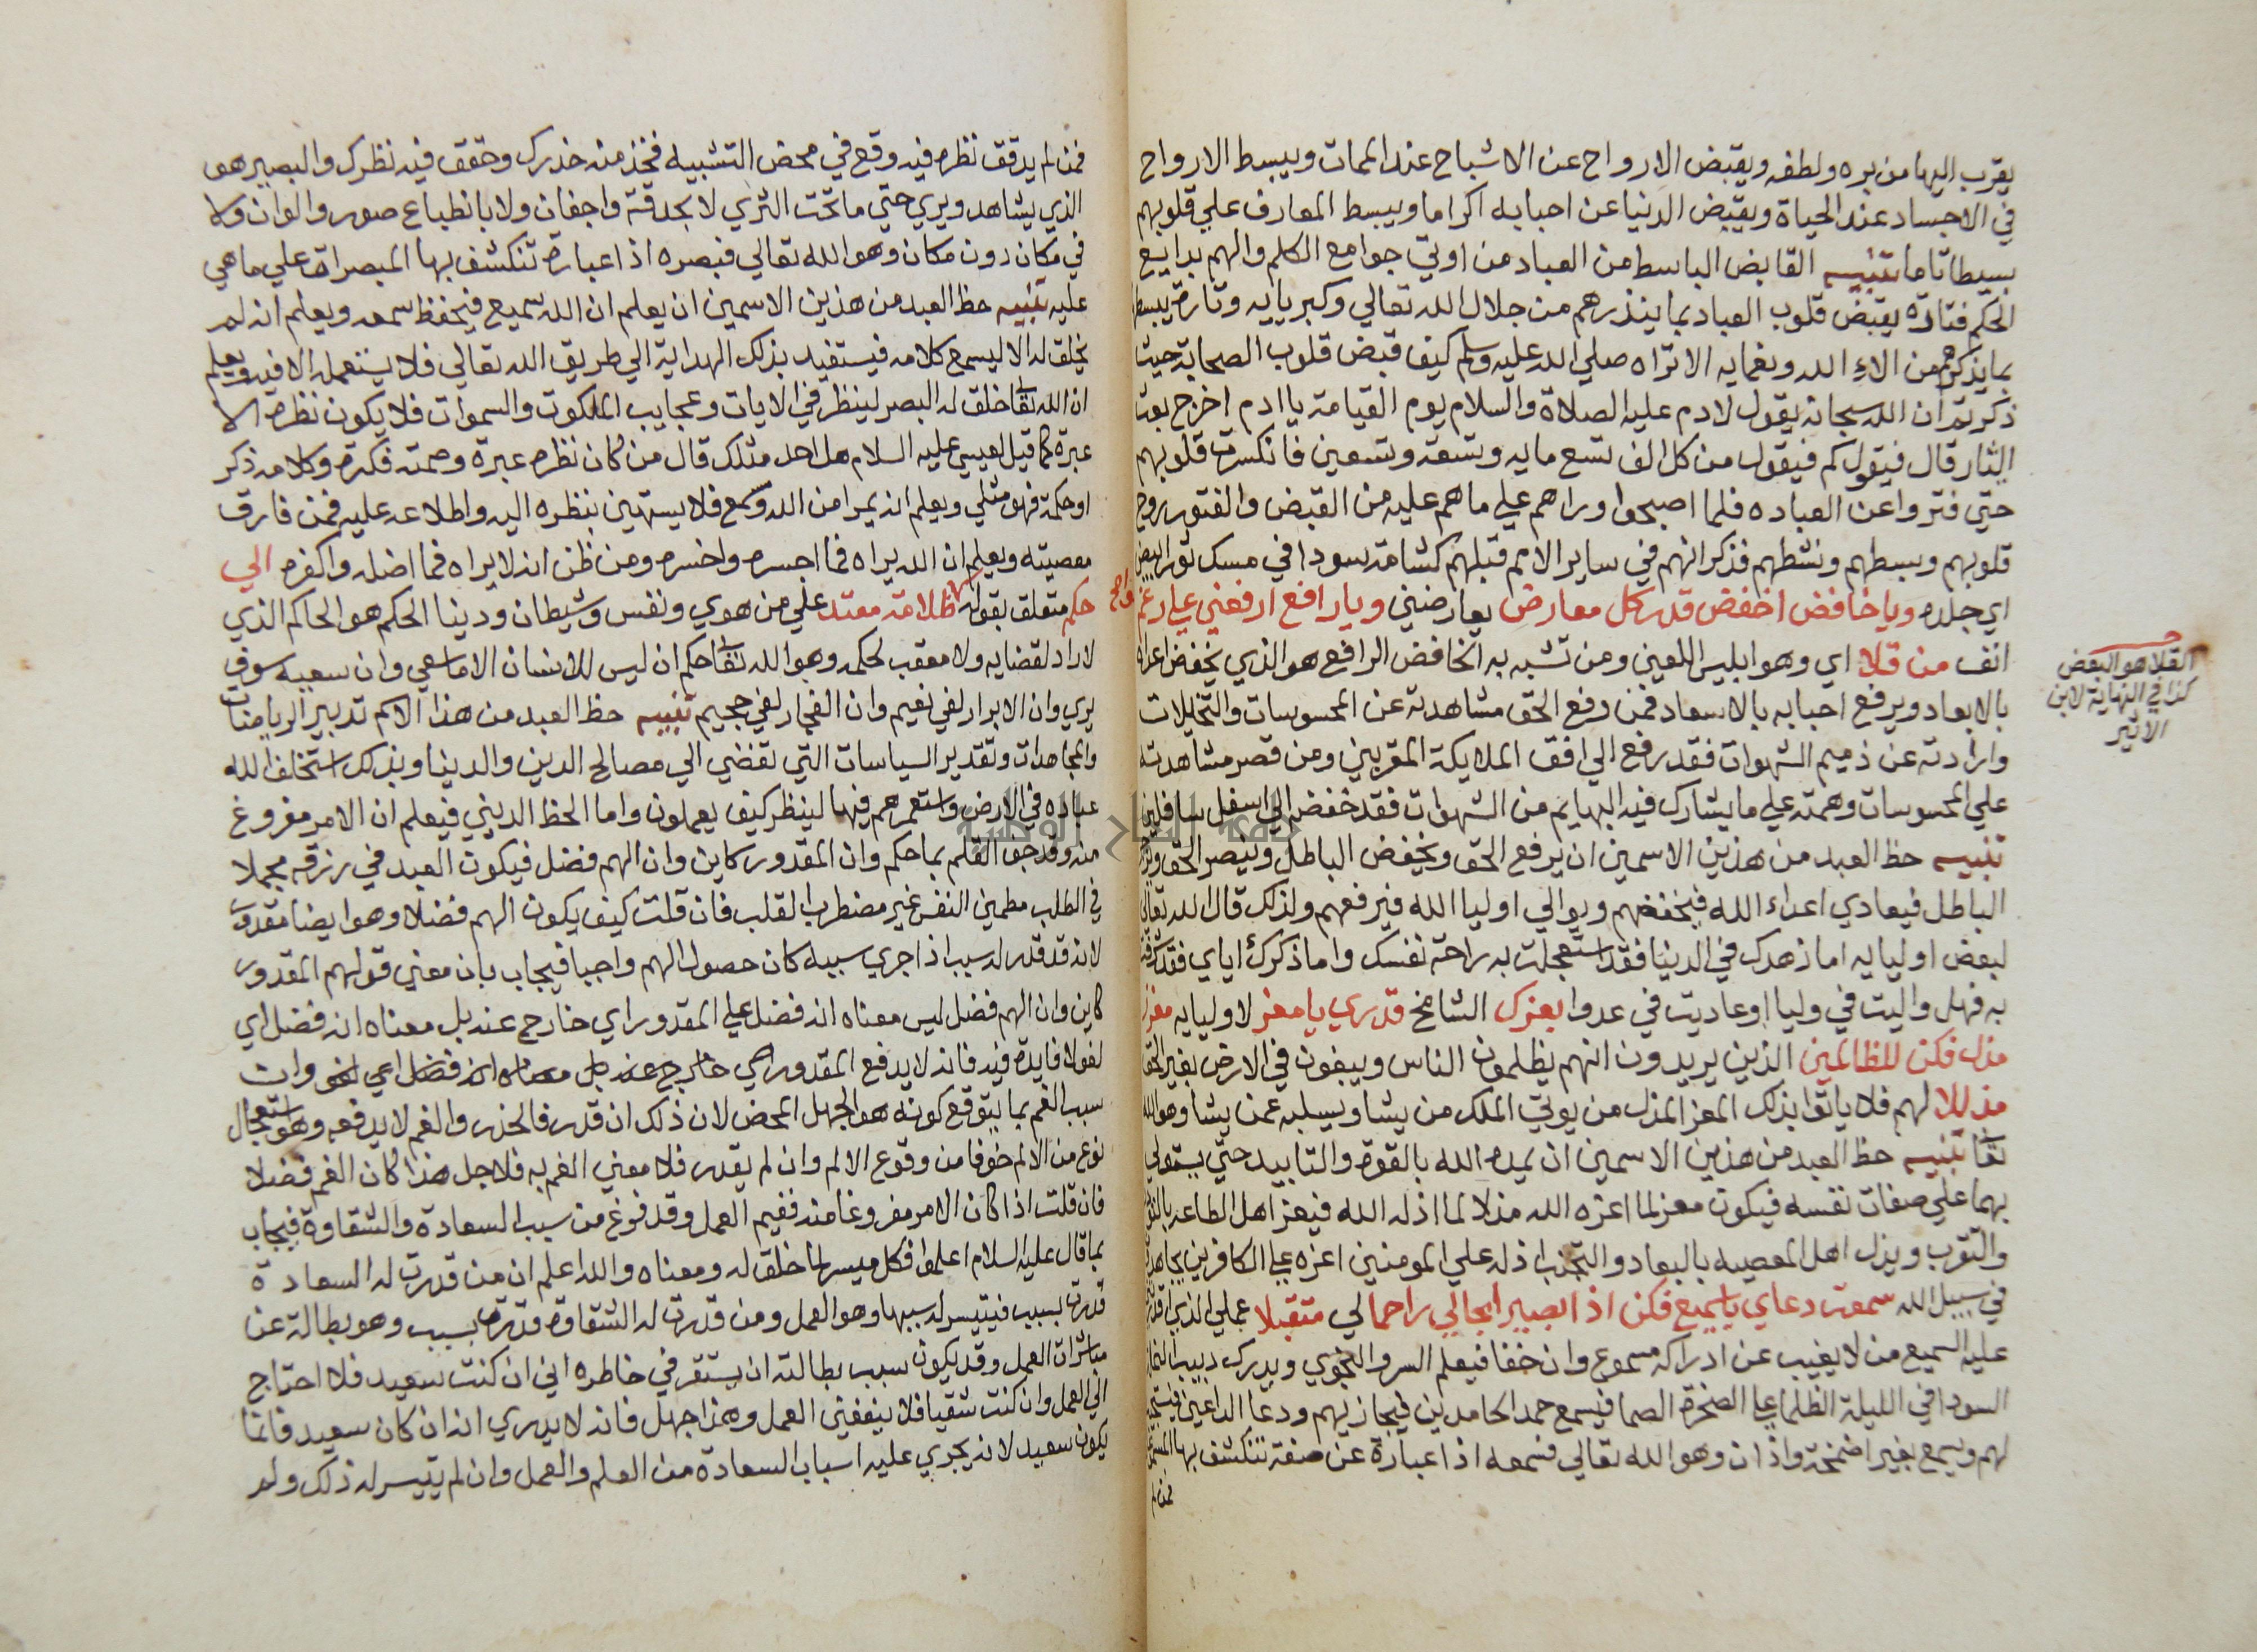 يقرب اليها من بره ولطفه ويقبض الارواح عن الاشباح عند الممات ويبسط الارواح
في الاجساد عند الحياة ويقبض الدنيا عن احبابه اكراما ويبسط المعارف علي قلوبهم
بسيطا تاما تنبيه القابض الباسط من العباد من اوتي جوامع الكلم والهم بدايع
الحكم فتارة يقبض قلوب العباد بما ينذرهم من جلال الله تعالي وكبريايه وتارة يبسط
بما يذكرهم من الاء الله ونعمايه الا تراه صلي الله عليه وسلم كيف قبض قلوب الصحابة حيث
ذكر تم ان الله سبحانه يقول لادم عليه الصلاة والسلام يوم القيامة يا ادم اخرج بعث
النار قال فيقول كم فيقول من كل الف تسع مايه وتسعة وتسعين فانكسرت قلوبهم
حتي فتروا عن العباده فلما اصبحوا وراهم علي ما هم عليه من القبض والفتور روح
قلوبهم وبسطهم ونشطهم فذكر انهم في ساير الامم قبلهم كشامة سودا في مسك ثور ابيض
اي جلده ويا خافض اخفض قدر كل معارض يعارضني ويا رافع ارفعني علي رغم
انف من قلا اي وهو ابليس اللعين ومن تشبه به الخافض الرافع هو الذي يخفض اعداه
بالابعاد ويرفع احبابه بالاسعاد فمن رفع الحق مشاهدته عن المحسوسات والتخيلات
وارادته عن ذميم الشهوات فقد رفع الي افق الملايكة المقربين ومن قصر مشاهدته
علي المحسوسات وهمته علي ما يشارك فيه البهايم من الشهوات فقد خفض الي اسفل سافلين
تنبيه حظ العبد من هذين الاسمين ان يرفع الحق ويخفض الباطل وينصر الحق
الباطل فيعادي اعداء الله فيخفضهم ويوالي اوليا الله فيرفعهم ولذلك قال الله تعالي
لبعض اوليايه اما زهدك في الدنيا فقد استعجلت به راحة نفسك واما ذكرك اياي فقد
به فهل واليت في وليا او عاديت في عدوا بعزك الشامخ قدري يا معز لاوليايه
مذل فكن للظالمين الذين يريدون انهم يظلمون الناس ويبغون في الارض بغير الحق
مذللا لهم فلا ياتوا بذلك المعز المذل من يوتي الملك من يشا ويسلبه عمن يشا وهو الله
تعا تنبيه حظ العبد من هذين الاسمين ان يمده الله بالقوة والتاييد حتي يستولي
بهما علي صفات نفسه فيكون معزا لما اعزه الله مذلا لما اذله الله فيعز اهل الطاعه
والتقرب ويذل اهل المعصيه بالبعاد والتجنب اذله علي المومنين اعزه علي الكافرين يجاهد
في سبيل الله سمعت دعاي يا سميع فكن اذا بصير ابحالي راحما لي متقبلا عملي الذي
عليه السميع من لا يغيب عن ادراكه مسموع وان خفا فيعلم السر والنجوي ويدرك دبيب النملة
السودا في الليلة الظلما علي الصخرة الصما فيسمع حمد الحامدين فيجازيهم ودعا الداعين
لهم ويسمع بغير اصمخة واذان وهو الله تعالي فسمعه اذا عبارة عن صفة تنكشف بها
فمن لم
القلا هو البغض
كذا في النهاية لابن
الاثير
فمن لم يدقق نظره فيه وقع في محض التشبيه فخذ منه حذرك وحقق فيه نظرك والبصير هو
الذي يشاهد ويري حتي ما تحت الثري لا بحدقة واجفان ولا بانطباع صور والوان ولا
في مكان دون مكان وهو الله تعالي فبصره اذا عبارة تنكشف بها المبصرات علي ما هي
عليه تنبيه حظ العبد من هذين الاسمين ان يعلم ان الله سميع فيحفظ سمعه ويعلم انه لم
يخلق له الا ليسمع كلامه فيستفيد بذلك الهداية الي طريق الله تعالي فلا يستعمله الا فيه ويعلم
ان الله تعا خلق له البصر لينظر في الايات وعجايب الملكوت والسموات فلا يكون نظره الا
عبرة كما قيل لعيسي عليه السلام هل احد مثلك قال من كان نظره عبرة وصمته فكرة وكلامه ذكر
او حكمة فهو مثلي ويعلم انه بمرا من الله ومسمع فلا يستهين بنظره اليه واطلاعه عليه فمن قارف
معصيته ويعلم ان الله يراه فما اجسره واخسره ومن ظن انه لا يراه فما اضله واكفره الي
حكم متعلق بقوله ظلامة معتد علي من هوي ونفس وشيطان ودنيا الحكم هو الحاكم الذي
لا راد لقضايه ولا معقب لحكمه وهو الله تعا حكم ان ليس للانسان الا ما سعي وان سعيه سوف
يري وان الابرار لفي نعيم وان الفجار لفي جحيم تنبيه حظ العبد من هذا الاسم تدبير الرياضات
والمجاهدات وتقدير السياسات التي تفضي الي مصالح الدين والدنيا وبذلك استخلف الله
عباده في الارض واستعمرهم فيها لينظر كيف يعملون واما الحظ الديني فيعلم ان الامر مفروغ
منه وقد جف القلم بما حكم وان المقدور كاين وان الهم فضل فيكون العبد في رزقه مجملا
في الطلب مطمين النفس غير مضطرب القلب فان قلت كيف يكون الهم فضلا وهو ايضا مقدور
لانه قد قدر له سببا اذا جري سببه كان حصول الهم واجبا فيجاب بان معني قولهم المقدور
كاين وان الهم فضل ليس معناه انه فضل علي المقدور اي خارج عنه بل معناه انه فضل اي
لغو لا فايدة فيه فانه لا يدفع المقدور اي خارج عنه بل معناه انه فضل اي لغو وان
سبب الغم بما يتوقع كونه هو الجهل المحض لان ذلك ان قدر فالحذر والغم لا يدفعه وهو استعجال
لنوع من الالم خوفا من وقوع الالم وان لم يقدر فلا معني الغم به فلاجل هذا كان الغم فضلا
فان قلت اذا كان الامر مفروغا منه ففيم العمل وقد فرغ من سبب السعادة والشقاوة فيجاب
بما قال عليه السلام اعملوا فكل ميسر لما خلق له ومعناه والله اعلم ان من قدرت له السعادة
قدرت بسبب فيتيسر له سببها وهو العمل ومن قدرت له الشقاوة قدرت بسبب وهو بطالة عن
مباشرات العمل وقد يكون سبب بطالته ان يستقر في خاطره اني ان كنت سعيد فلا احتاج
الي العمل وان كنت شقيا فلا ينفعني العمل وهذا جهل فانه لا يدري انه ان كان سعيد فانما
يكون سعيد لانه يجري عليه اسباب السعادة من العلم والعمل وان لم يتيسر له ذلك ولم